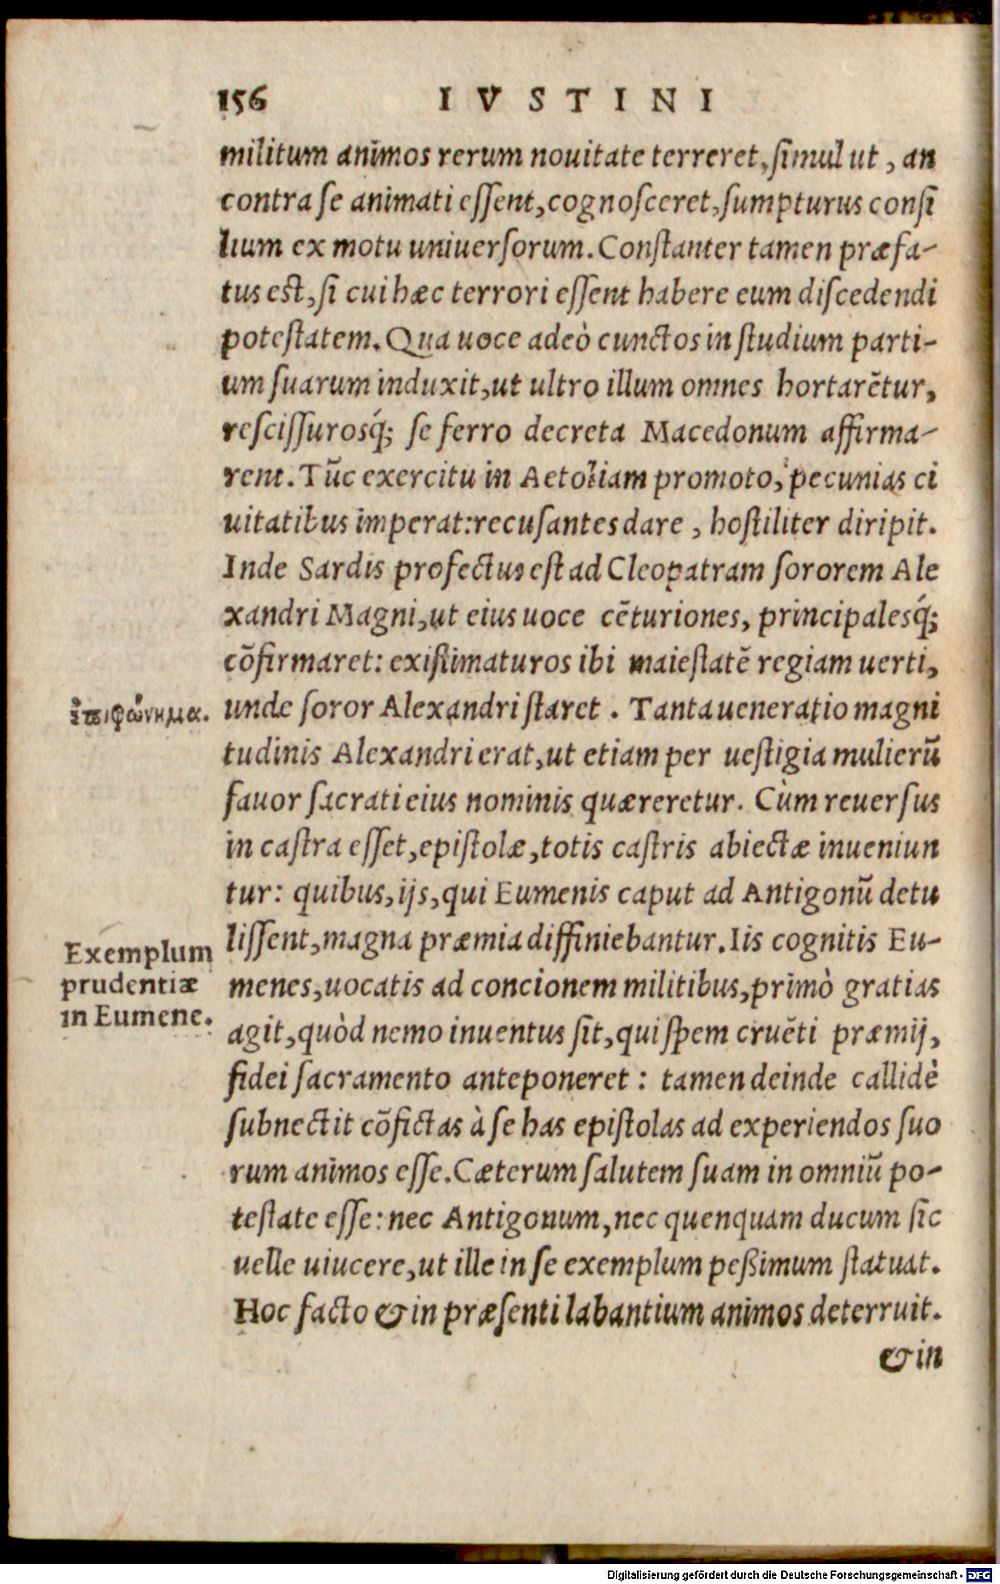 156 IVSTINI
militum animos rerum nouitate terreret, simul ut, an
contra se animati essent, cognosceret, sumpturus consi
lium ex motu uniuersorum. Constanter tamen præfa-
tus est, si cui hæc terrori essent habere eum discedendi
potestatem. Qua uoce adeò cunctos in studium parti-
um suarum induxit, ut ultro illum omnes hortarētur,
rescissurosq́; se ferro decreta Macedonum affirma-
rent. Tūc exercitu in Aetoliam promoto, pecunias ci
uitatibus imperat: recusantes dare, hostiliter diripit.
Inde Sardis profectus est ad Cleopatram sororem Ale
xandri Magni, ut eius uoce cēturiones, principalesq́;
cōfirmaret: existimaturos ibi maiestatē regiam uerti,
ἐπιφώνημα.
unde soror Alexandri staret. Tanta ueneratio magni
tudinis Alexandri erat, ut etiam per uestigia mulierū
fauor sacrati eius nominis quæreretur. Cùm reuersus
in castra esset, epistolæ, totis castris abiectæ inueniun
tur: quibus, ijs, qui Eumenis caput ad Antigonū detu
lissent, magna præmia diffiniebantur. Iis cognitis Eu-
Exemplum
prudentiæ
in Eumene.
menes, uocatis ad concionem militibus, primò gratias
agit, quòd nemo inuentus sit, qui spem cruēti præmij,
fidei sacramento anteponeret: tamen deinde callidè
subnectit cōfictas à se has epistolas ad experiendos suo
rum animos esse. Cæterum salutem suam in omniū po-
testate esse: nec Antigonum, nec quenquam ducum sic
uelle uiucere, ut ille in se exemplum peßimum statuat.
Hoc facto & in præsenti labantium animos deterruit.
& in
Digitalisierung gefördert durch die Deutsche Forschungsgemeinschaft - DFG